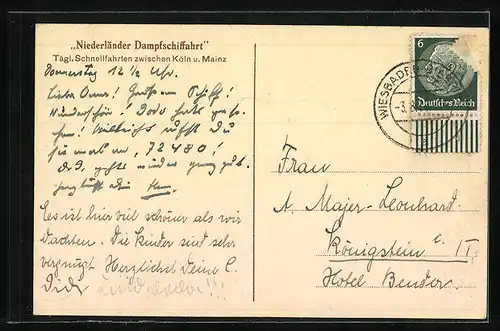 „Niederländer Dampfschiffahrt"
Tägl. Schnellfahrten zwischen Köln u. Mainz
Donnerstag 12 ½ Uhr.
Liebe Oma! Gruß vom Schiff!
Wunderschön! Dodo hat
Vielleicht rufst Du
sie mal an, 72480!
geht wieder ganz gut.
Es ist hier viel schöner als wir
dachten. Die Kinder sind sehr
vergnügt. Herzlichst Deine C.
6
Deutsches Reich
WIESBADEN
Frau
A. Majer-Leonhard.
Königstein i. T.
Hotel Bender.